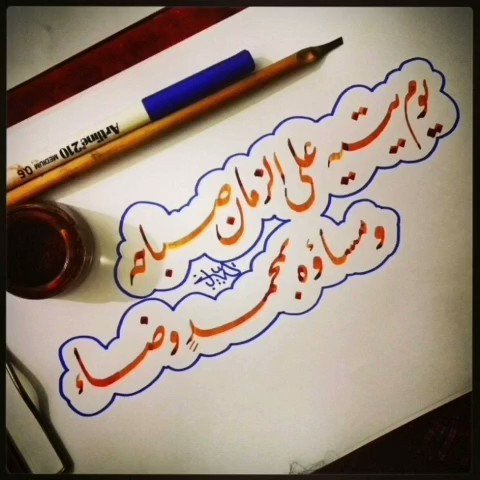 يوم يتيه على الزمان صباحه
ومساؤه بمحمدٍ وضاء
Artline 210
MEDIUM 0.6